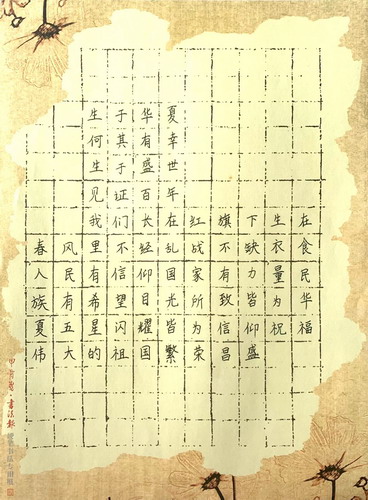 生于华夏
何其有幸
生于盛世
见证百年
我们长在红旗下生在
春风里不经乱战不缺衣食
人民有信仰国家有力量民
族有希望目光所致皆为华
夏五星闪耀皆为信仰祝福
伟大的祖国繁荣昌盛